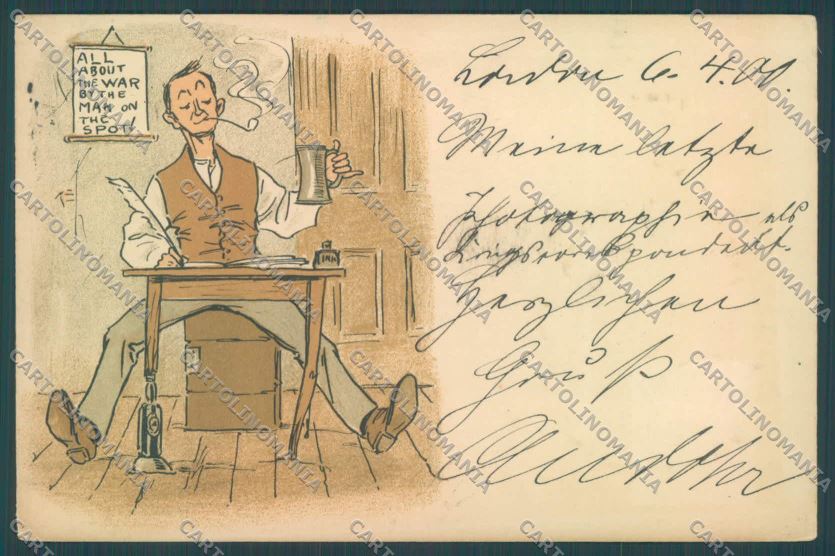 ALL
ABOUT
THE WAR
BY THE
MAN ON
THE
SPOT!
INK
London 6. 4. 00.
Meine letzte
Photographie als
Kriegskorrespondent.
Herzlichen
Gruß
CARTOLINOMANIA